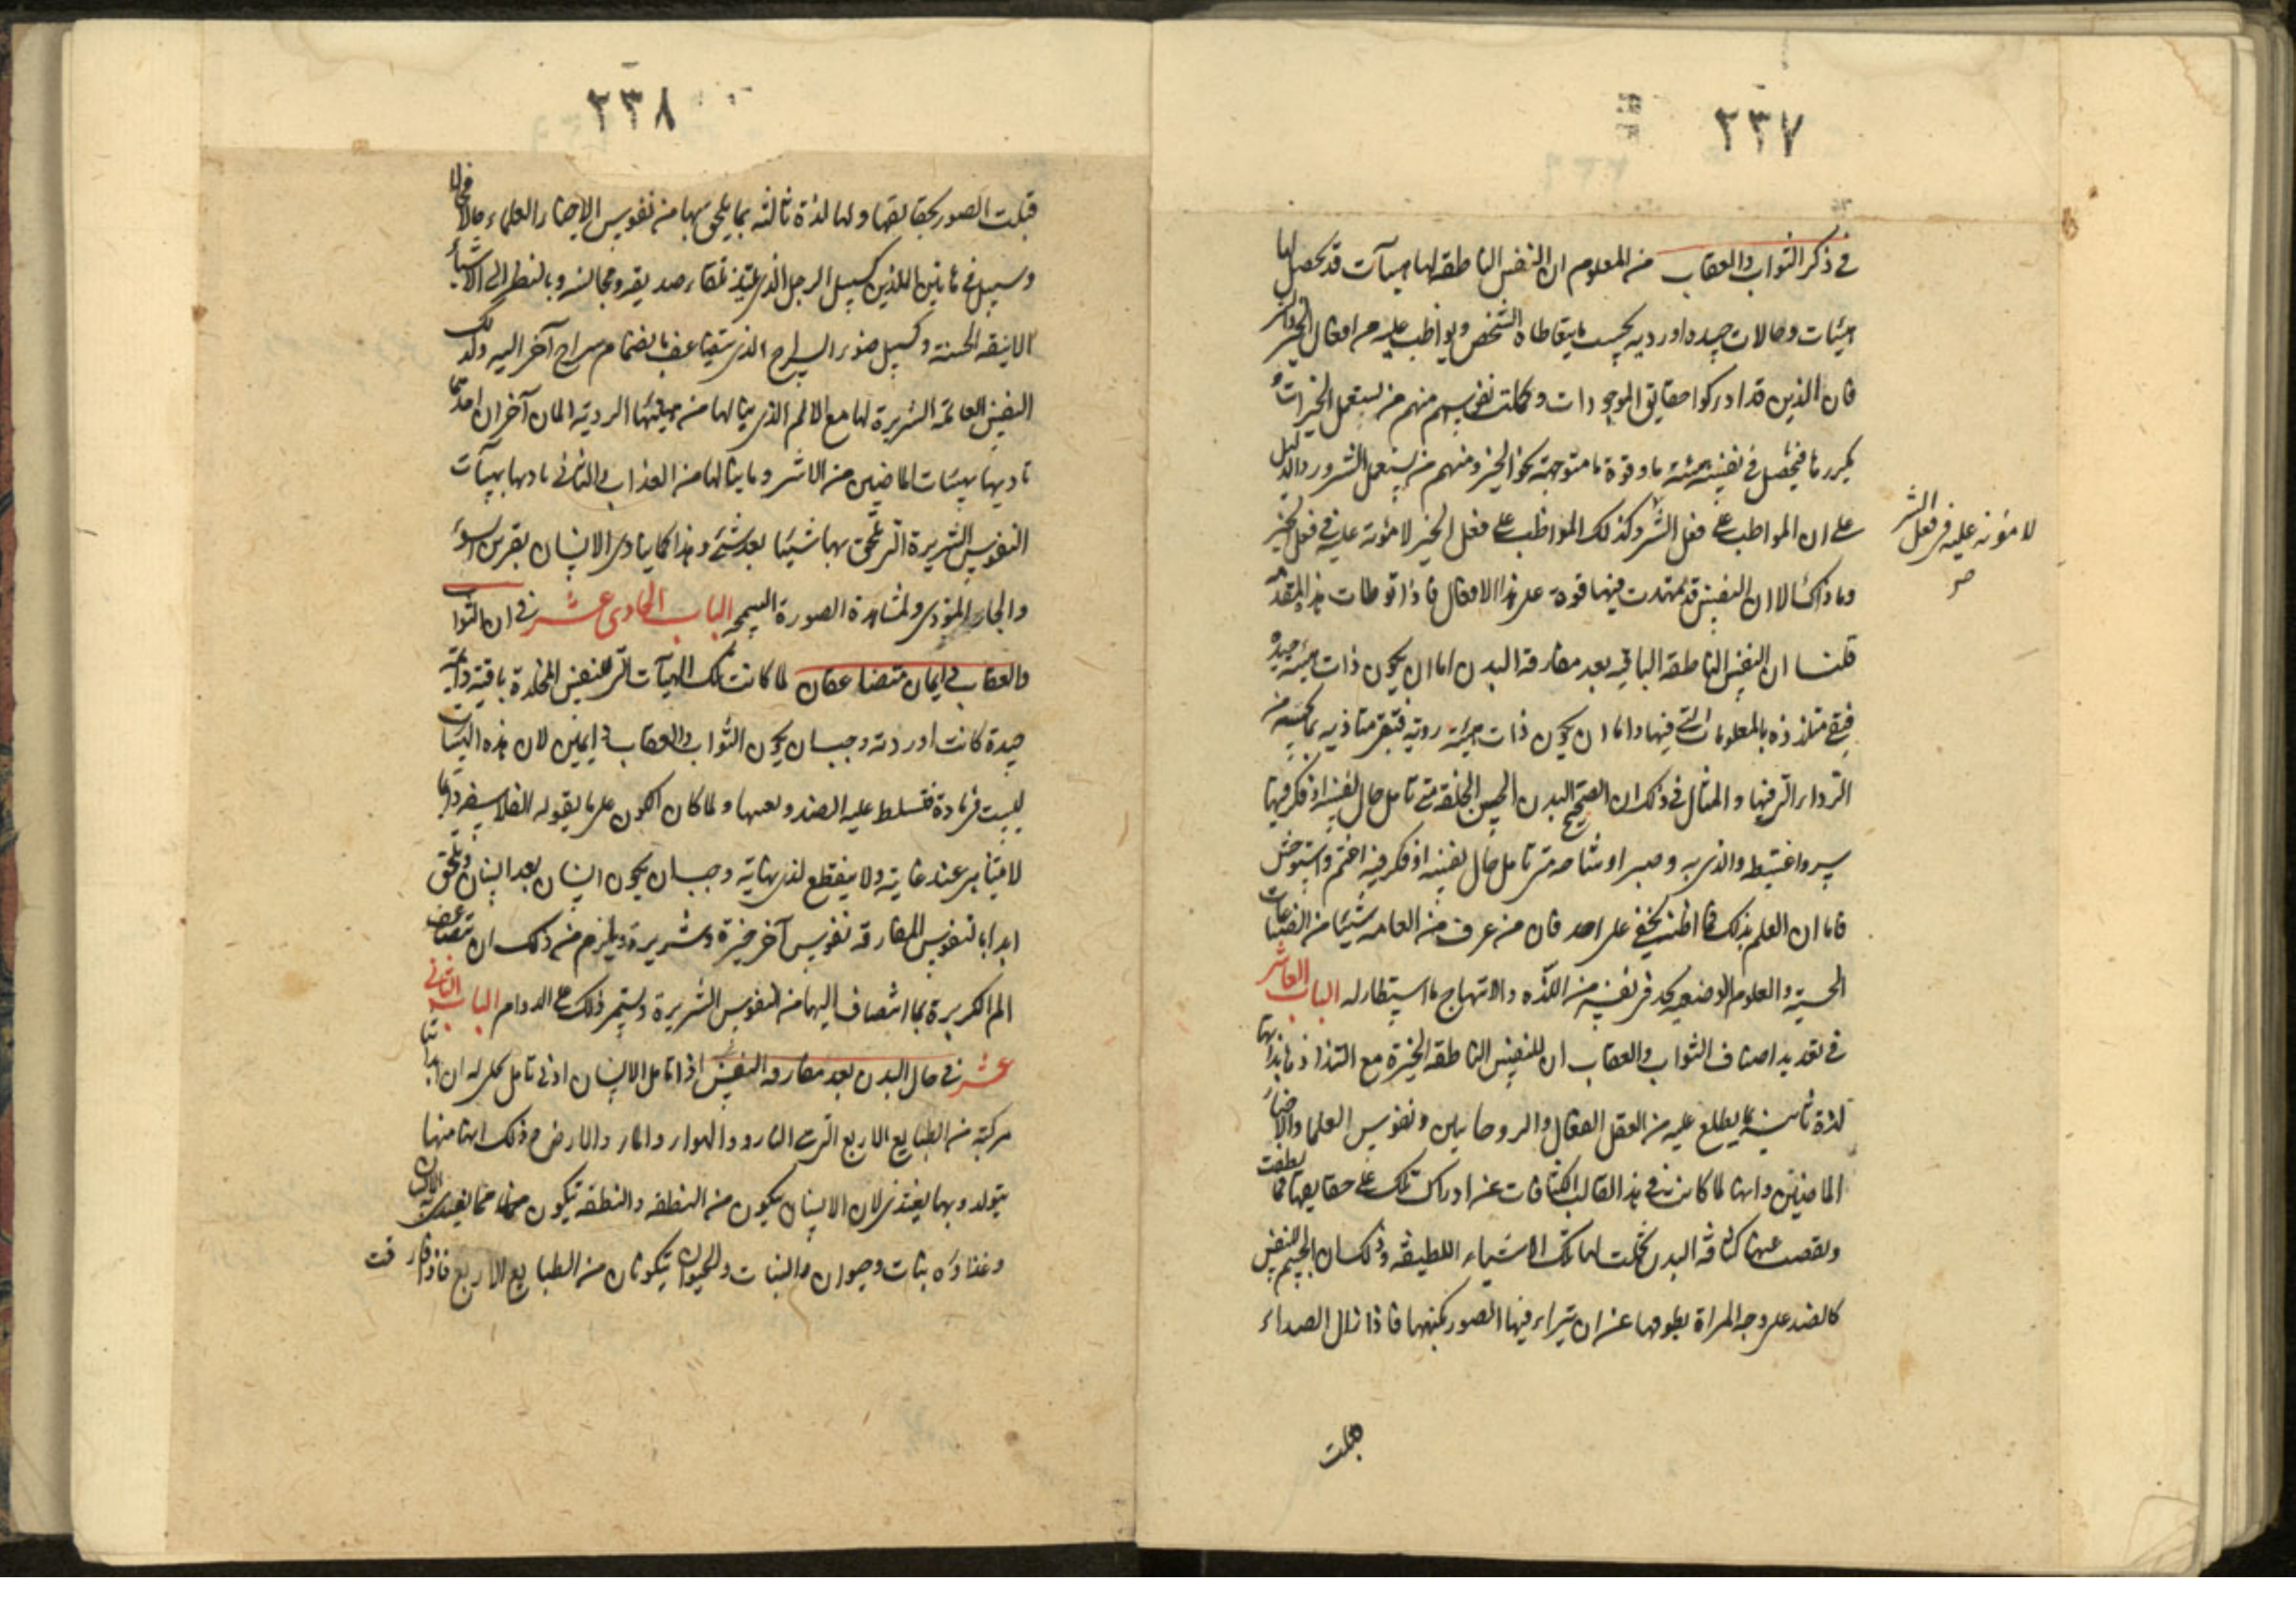 ٢٣٧
في ذكر الثواب والعقاب من المعلوم ان النفس الناطقة لها هيآت قد تحصل لها
هيئات وحالات جيده او رديه بحسب ما يتعاطاه الشخص ويواظب عليه من افعال الخير والشر
فان الذين قد ادركوا حقايق الموجودات وكملت نفوسهم منهم من يستعمل الخيرات و
يكررها فيحصل في نفسه هيئة ما وقوة ما متوجهة نحو الخير ومنهم من يستعمل الشرور والدليل
على ان المواظب على فعل الشر وكذلك المواظب على فعل الخير لا مؤنة عليه في فعل الخير
لا مؤنة عليه في فعل الشر
صح
وما ذاك الا لان النفس قد تمهدت فيها قوة على هذا الافعال فاذا توطات هذه المقدمة
قلنا ان النفس الناطقة الباقية بعد مفارقة البدن اما ان يكون ذات هيئة جيده
فبقى متلذذه بالمعلومات التي فيها واما ان يكون ذات هيئة رديه فتبقى متاذيه بما تحسه من
الرداء التي فيها والمثال في ذلك ان الصحيح البدن الحسن الخلقة متى تامل حال نفسه اذ فكر فيها
سر واغتبط والذي به متى تامل حال نفسه اذ فكر فيه اغتم واستوحش
فاما ان العلم بذلك فما اظنه يخفى على احد فان من عرف من العامه شيئا من الصناعات
الحسية والعلوم الوضعيه يجد في نفسه من اللذه والابتهاج ما استطار له الباب العاشر
في تعديد اصناف الثواب والعقاب ان للنفس الناطقة الخيرة مع التذاذها بذاتها
لذة ثانية بما يطلع عليه من العقل الفعال والروحانيين ونفوس العلما والاخيار
الماضين وانها لما كانت في هذا القالب الكثافات عن ادراك تلك على حقايقها فلما لطفت
ونقصت عنها كثافة البدن تجلت لها تلك الاشياء اللطيفة وذلك ان الجسم للنفس
كالصدء على وجه المراة يعوقها عن ان يتراء فيها الصور بكنهها فاذا زال الصداء
قبلت
٢٣٨
قبلت الصور بحقايقها ولها لذة ثالثه بما يلحق بها من نفوس الاخيار العلماء حالا فحالا
وسبيل في هاتين اللذتين كسبيل الرجل الذي يلتذ بلقاء صديقه ومجالسه وبالنظر الى الاشياء
الانيقه الحسنة وكسبيل ضوء السراج الذي يتضاعف بانضمام سراج آخر اليه وكذلك
النفس العالمة الشريرة لها مع الالم الذي ينالها من هيئتها الرديه المان آخران احدهما
تاديها بهيئات الماضين من الاشر وما ينالها من العذاب والثاني تاديها بهيآت
النفوس الشريرة التي تلحق بها شيئا بعد شئ وهذا كما يتاذى الانسان بقرين السوء
والجار المؤذى ولمشاهدة الصورة السمجه الباب الحادى عشر في ان الثواب
والعقاب دايمان متضاعفان لما كانت تلك الهيآت التي للنفس المخلدة باقية دايمة
جيدة كانت او ردئه وجب ان يكون الثواب والعقاب دايمين لان هذه الهيئات
ليست في مادة فتسلط عليه الضد وبعبها ولما كان الكون على ما يقوله الفلاسفه دايما
لا يتناهى عند غاية ولا ينقطع لدى نهاية وجب ان يكون انسان بعد انسان ويلحق
ابدا بالنفوس المفارقة نفوس آخر خيرة وشريرة ويلزم من ذلك ان يتضاعف
الم الشريرة بما انضاف اليها من النفوس الشريرة ويستمر ذلك على الدوام الباب الثانى
عشر في حال البدن بعد مفارقه النفس اذا تامل الانسان ادنى تامل تحلى له ان ابداننا
مركبة من الطبايع الاربع التي هي النار والهواء والماء والارض وذلك انها منها
يتولد وبها يغتذى لان الانسان يكون من النطفه والنطفه تكون مما يغتذى به الانسان
وغذاؤه نبات وحيوان والنبات والحيوان يتكونان من الطبايع الاربع فاذا فارقت